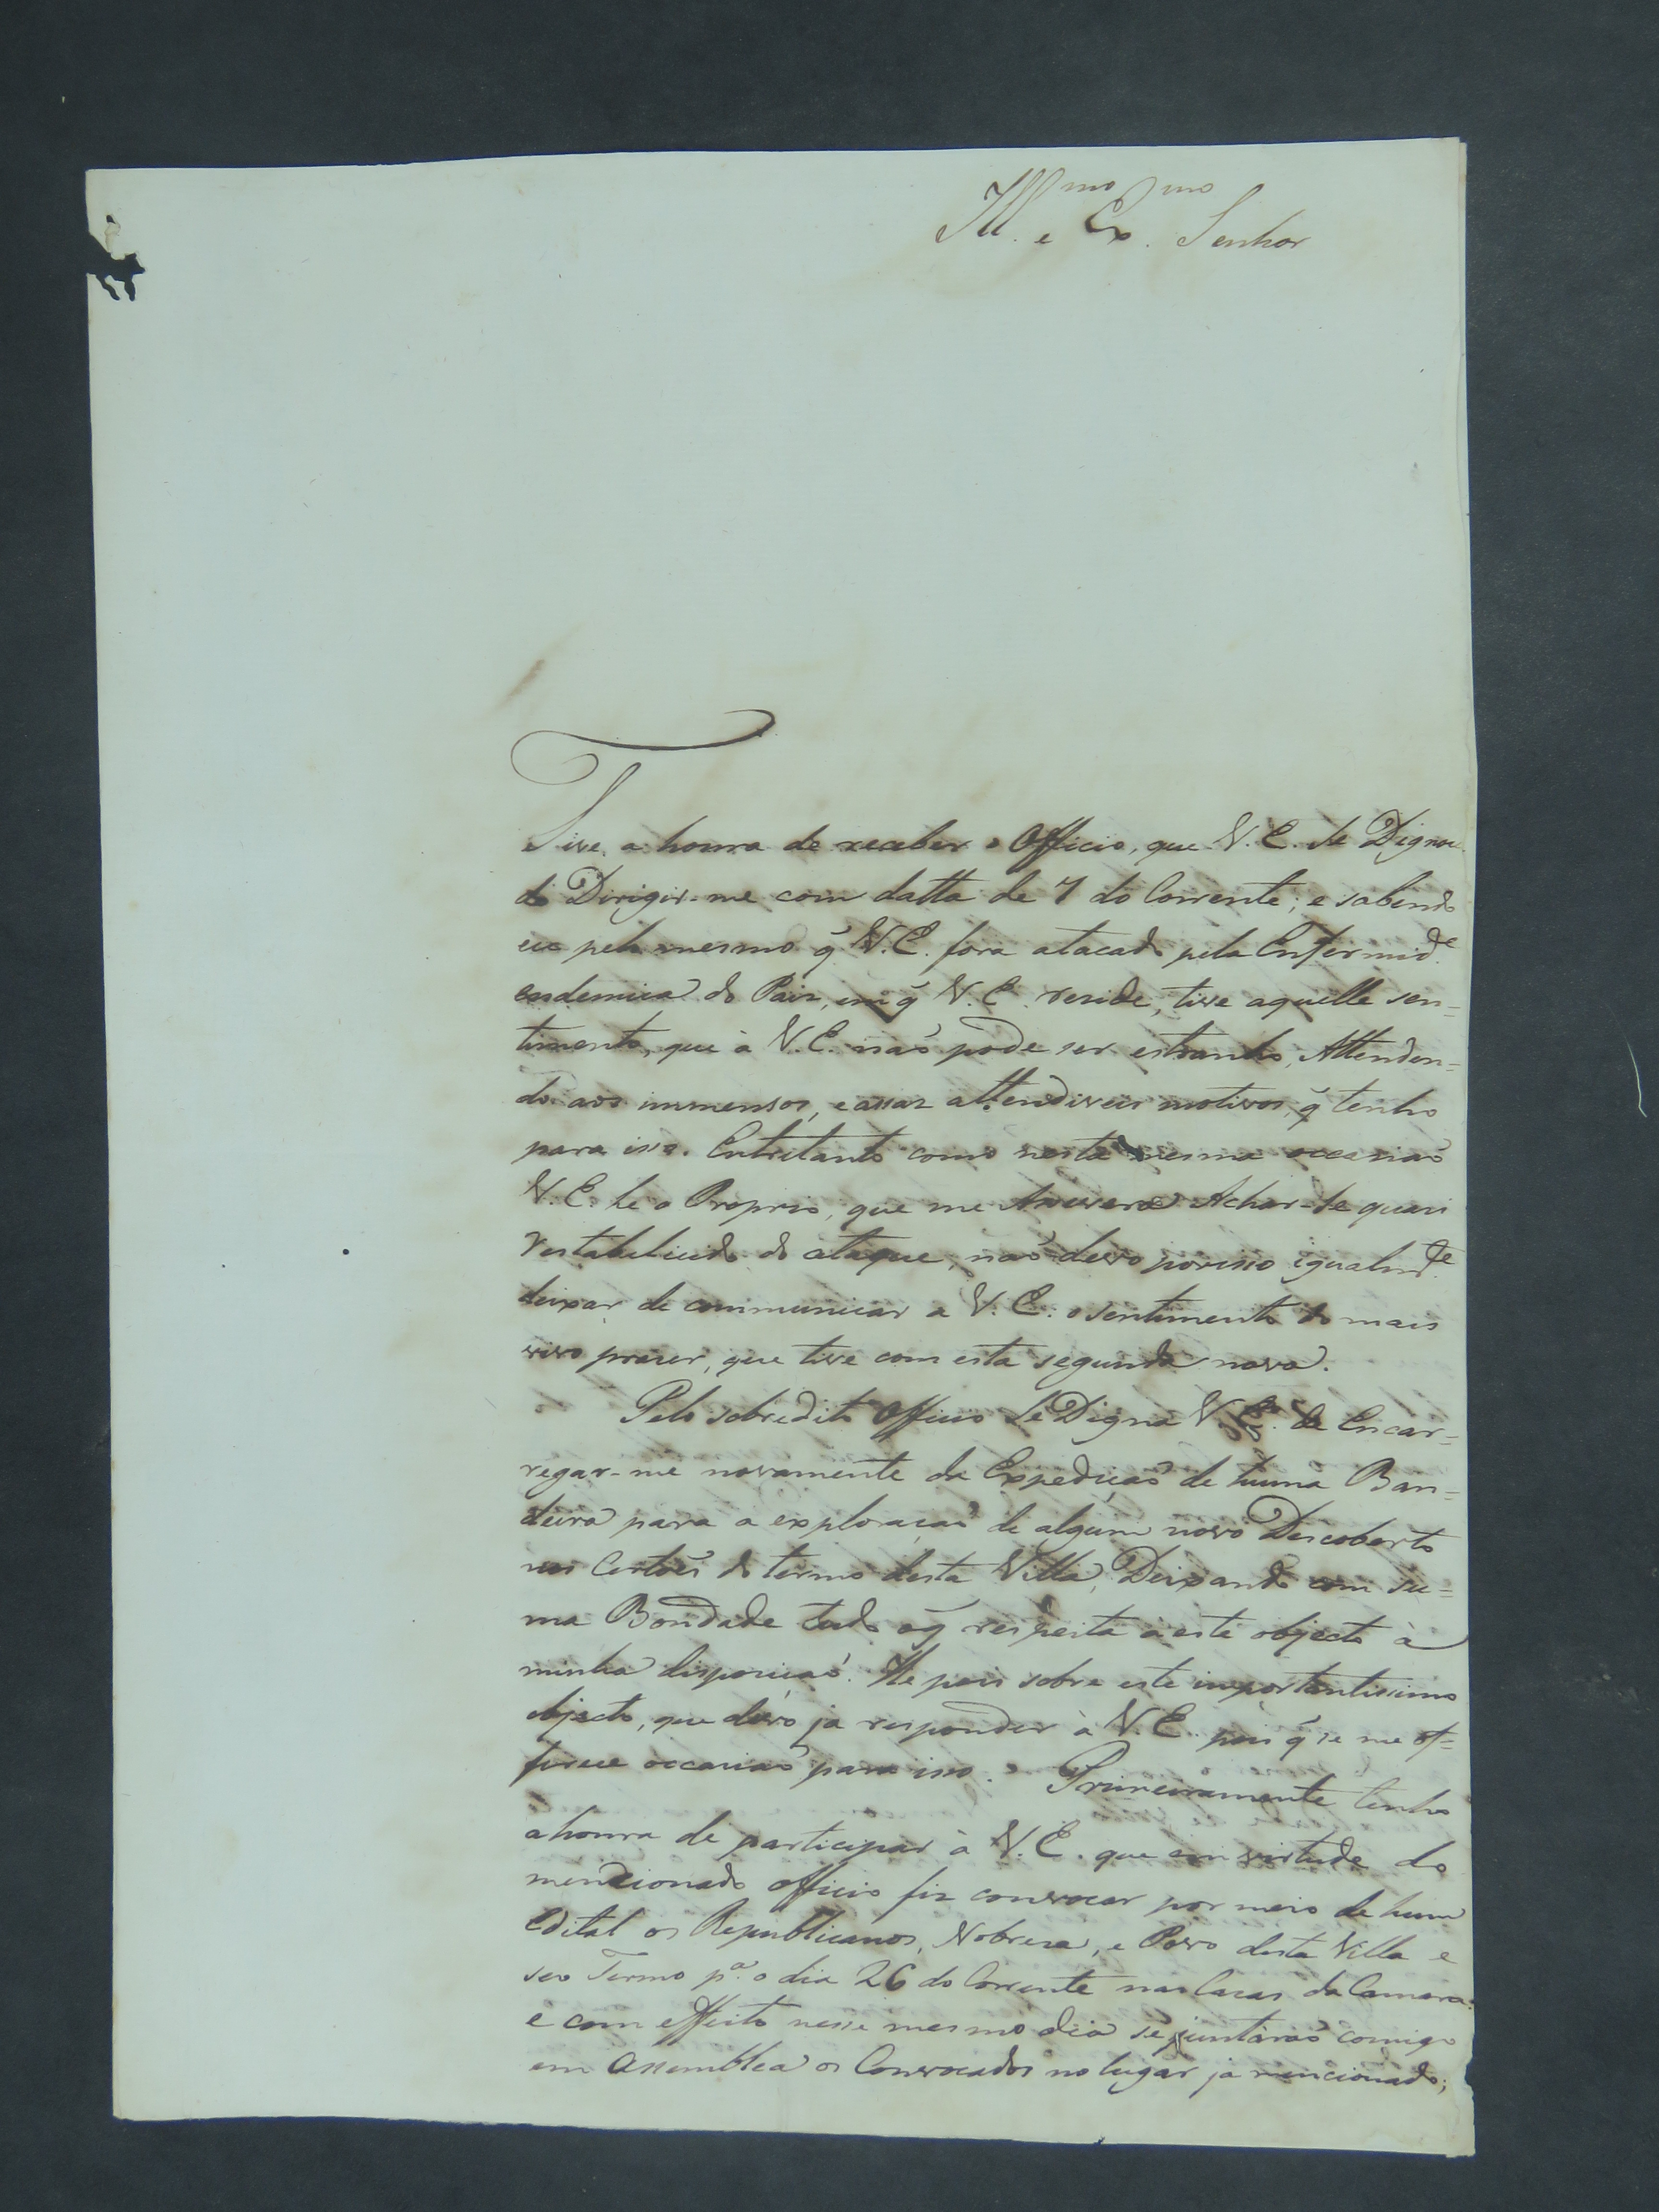 Ill.mo e Ex.mo Senhor
Tive a honra de receber o Officio, que V. E. Se Dignou
de Dirigir-me com datta de 7 do Corrente; e sabendo
eu pelo mesmo q̃ V. E. fora atacado pela Enfermid.e
endemica do Paiz, em q̃ V. E. reside, tive aquelle sen=
timento, que à V. E. naõ pode ser estranho, Attenden=
do aos immensos, e assaz attendiveis motivos, q̃ tenho
para isso. Entretanto como nesta mesma occasiaõ
V. E. he o Proprio, que me Assevera Achar-Se quasi
restabelicido do ataque, naõ devo porisso igualm.te
deixar de communicar a V. E. o sentimento do mais
vivo prazer, que tive com esta segunda nova.
Pelo sobredito Officio Se Digna V. E. de Encar=
regar-me novamente da Expediçaõ de huma Ban=
deira para a exploraçaõ de algum novo Descoberto
nos Certões do termo desta Villa, Deixando com su=
ma Bondade tudo oq̃ respeita à este objecto à
minha disposiçaõ. He pois sobre este importantissimo
objecto, que devo ja responder à V. E. pois q̃ se me of=
ferece occasiaõ para isso. Primeiramente tenho
a honra de participar à V. E. que em virtude do
mencionado officio fiz convocar por meio de hum
Edital os Republicanos, Nobresa, e Povo desta Villa e
seo Termo p.a o dia 26 do Corrente nas Casas da Camara:
e com effeito nesse mesmo dia se juntáraõ comigo
em Assemblea os Convocados no lugar ja mencionado;